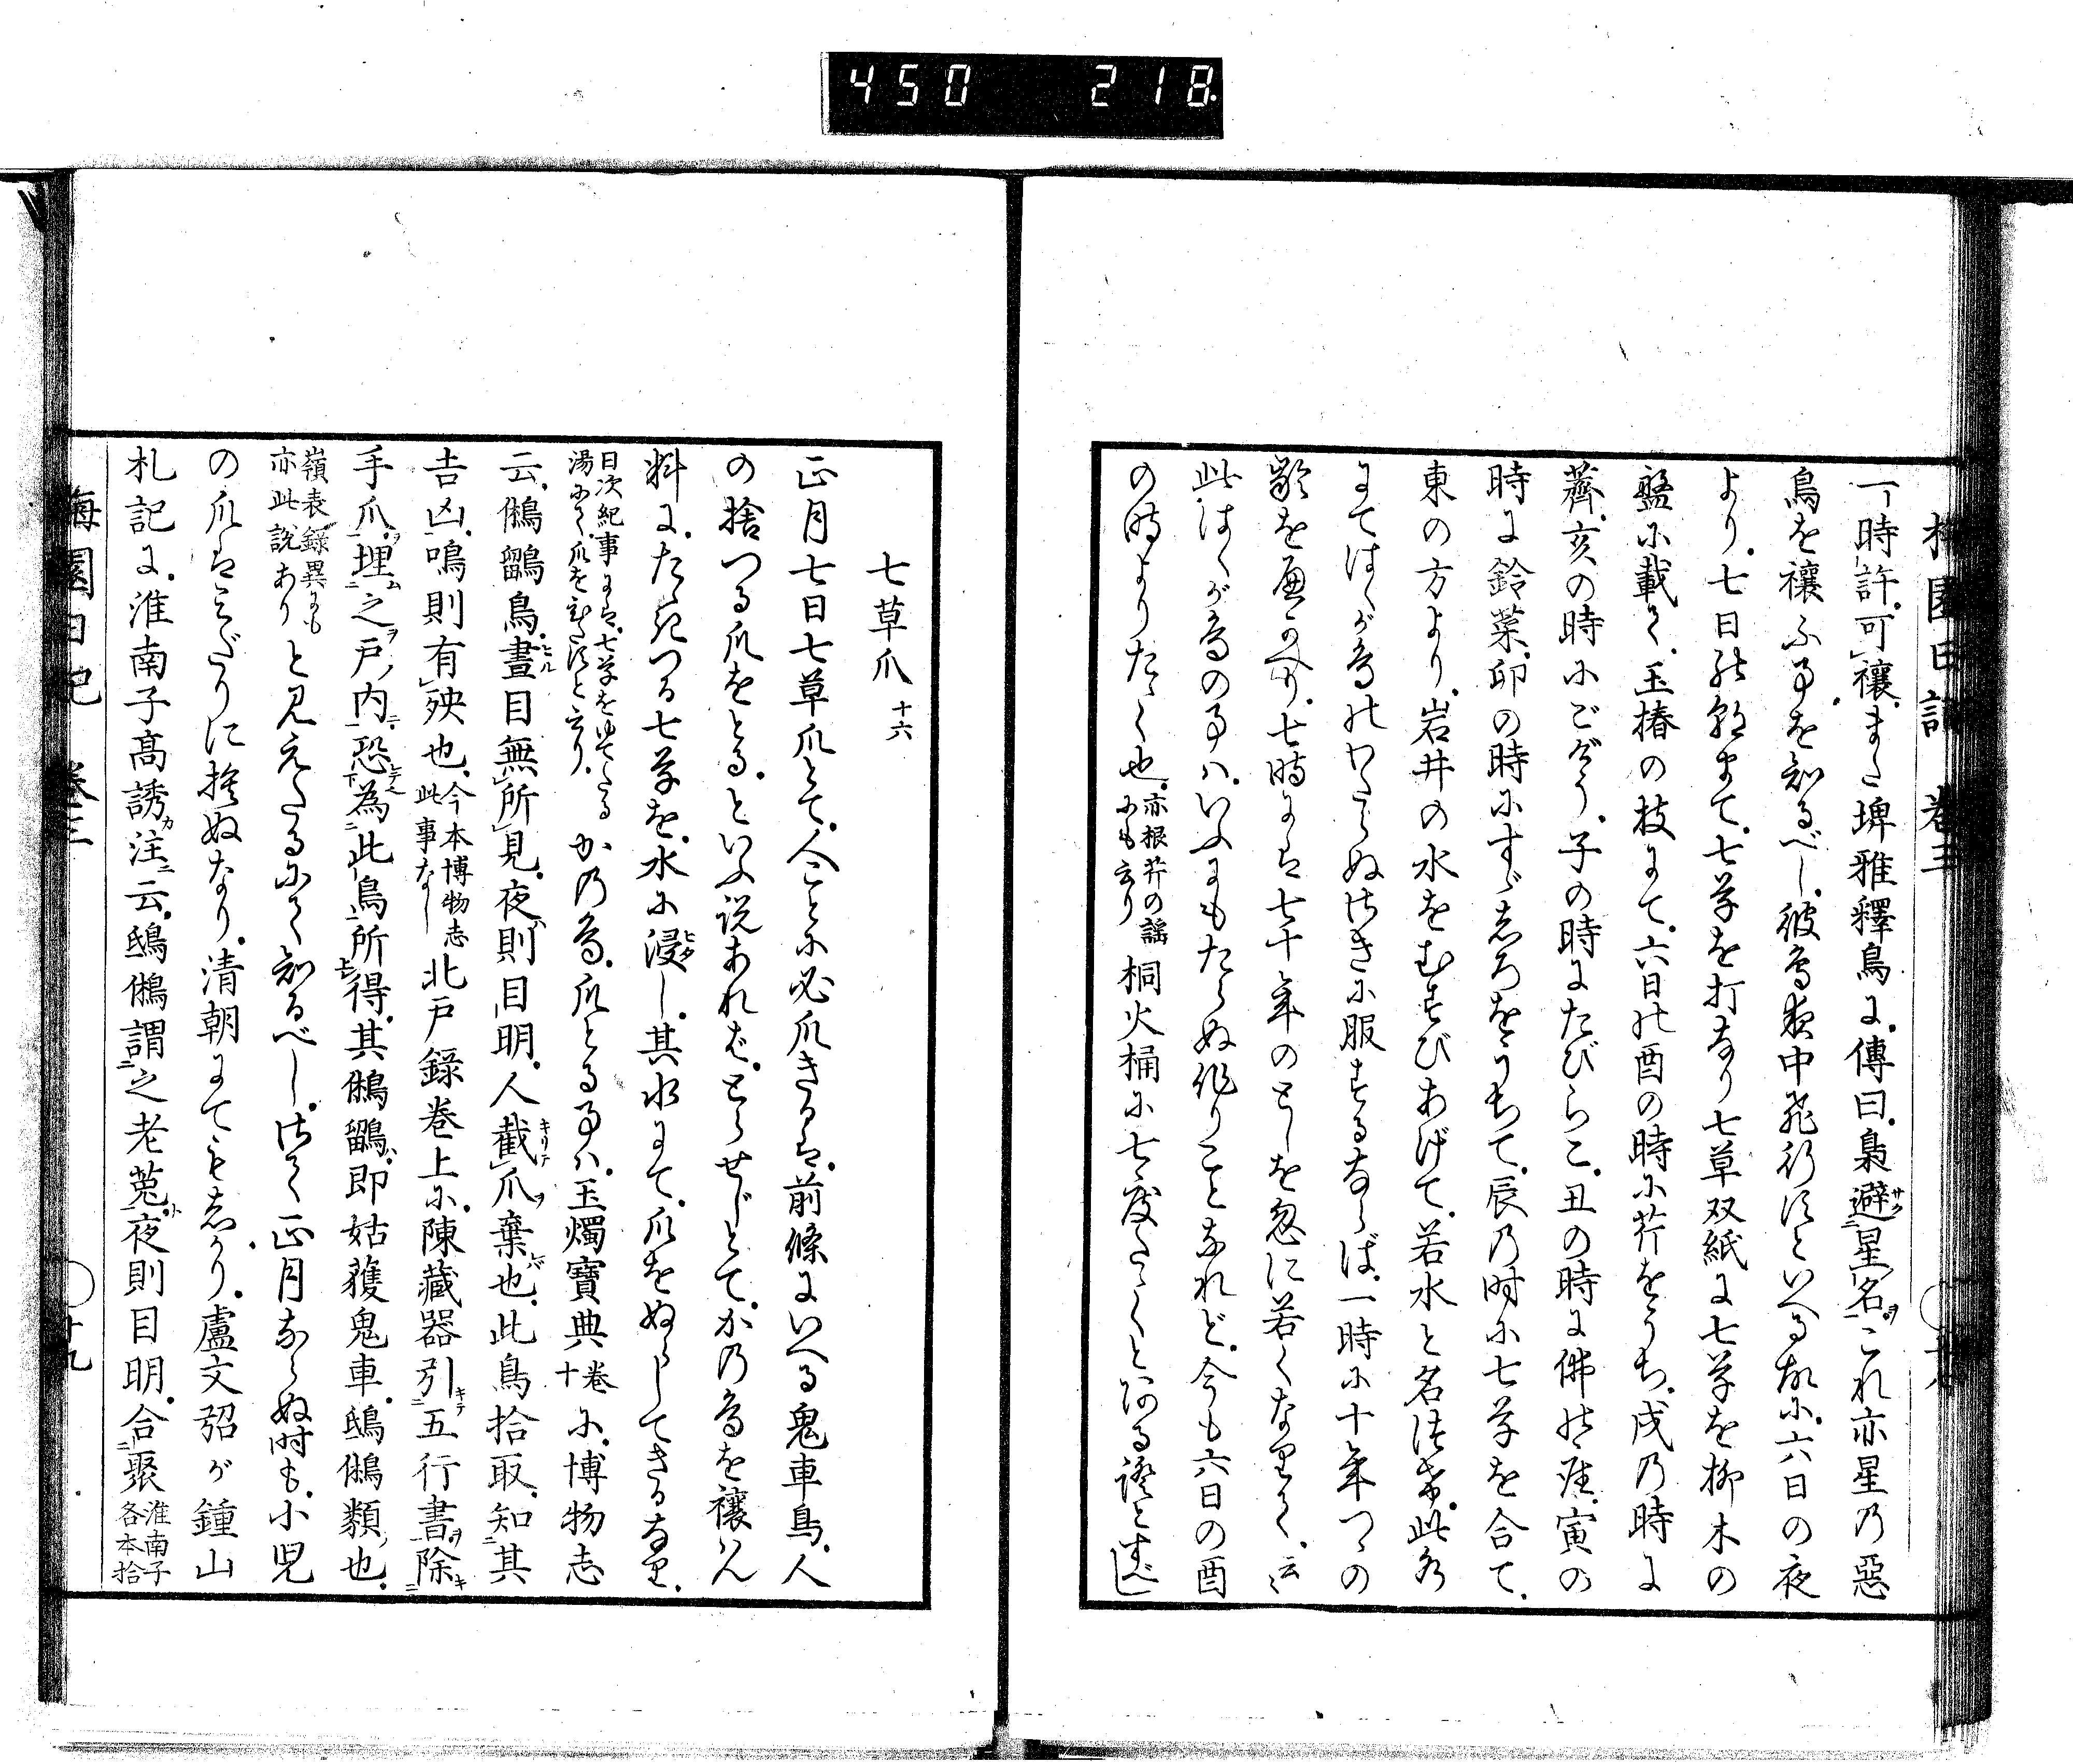 450 218
梅園日記 巻三
一時許可禳また埤雅釋鳥に傳曰梟避星名これ亦星の惡
鳥を禳ふ事を知るべし彼鳥夜中飛行すといへる故に六日の夜
より七日の朝まで七草を打なり七草双紙に七草を柳木の
盤に載て玉椿の枝にて六日の酉の時に芹をうち戌の時に
薺亥の時にごぎやう子の時にたびらこ丑の時に佛の座寅の
時に鈴菜卯の時にすゞしろをうちて辰の時に七草を合て
東の方より岩井の水をむすびあげて若水と名づけ此水
にてはくが鳥のわたらぬさきに服するならば一時に十年づゝの
齢をへかへり七時には七十年のとしを忽に若くなりて云々
此はくが鳥の事はいふにもたらぬ作りことなれど今も六日の酉
の時よりたゝく也亦根芹の謡にも云り桐火桶に七々度たゝくとある證とすべし
七草爪 十六
正月七日七草爪とて人ごとに必爪きるは前條にいへる鬼車鳥人
の捨つる爪をとるといふ説あれば とらせじとてかの鳥を禳はん
料にたゝきつる七草を水に浸し其水にて爪をぬらしてきるなり
日次紀事には七草をゆでたる湯にて爪をひたすと云り かの鳥爪とる事は玉燭寶典卷十に博物志
云鵂鶹鳥晝目無所見夜則目明人截爪棄也此鳥拾取知其
吉凶鳴則有殃也今本博物志此事なし 北戸録巻上に陳藏器引五行書除
手爪埋之戸内恐為此鳥所得其鵂鶹即姑獲鬼車鴟鵂類也
嶺表録異にも亦此説あり と見えたるにて知るべしさて正月ならぬ時も小児
の爪はみだりに捨ぬなり清朝にてもしかり盧文弨が鍾山
札記に淮南子高誘注云鴟鵂謂之老菟夜則目明合聚淮南子各本拾
梅園日記 巻三 十九